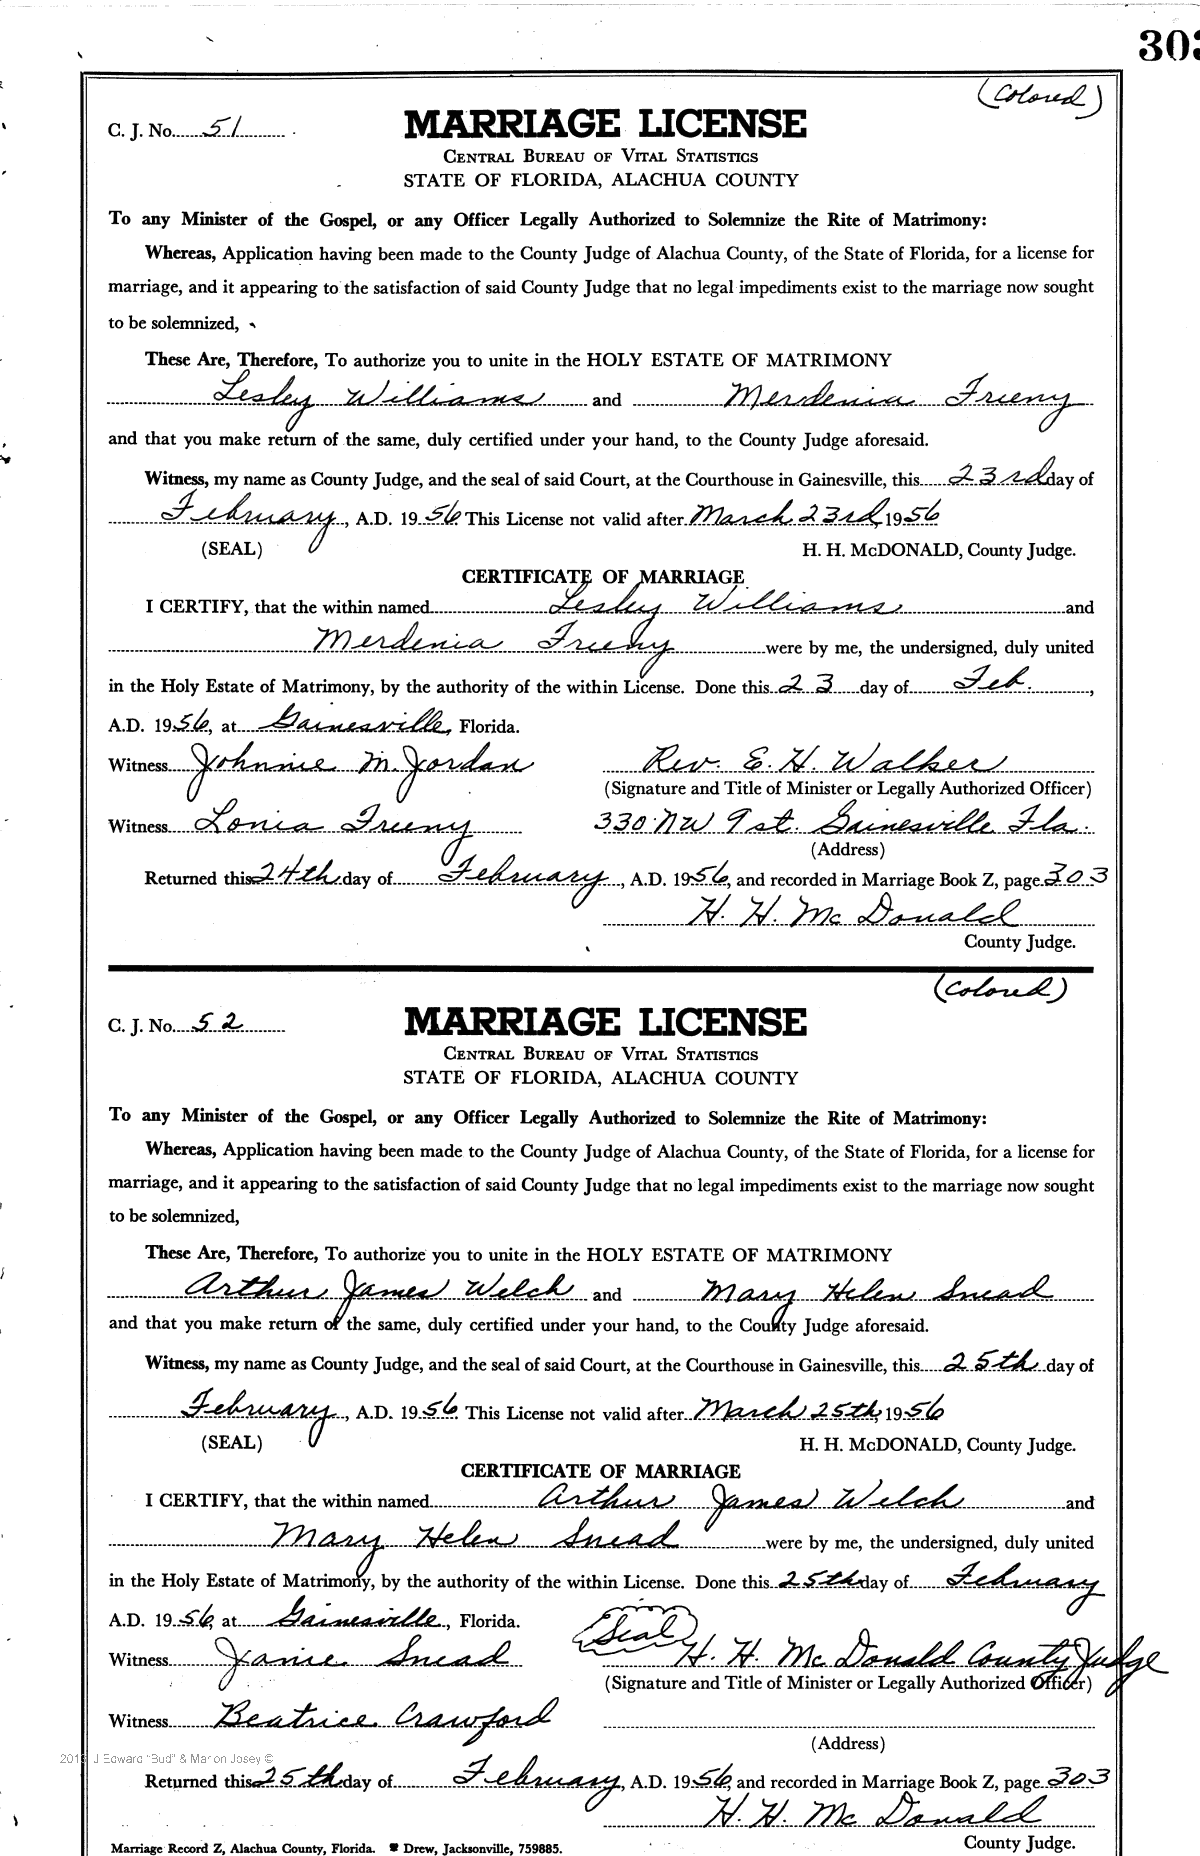 303
(Colored)
C. J. No. 51
MARRIAGE LICENSE
CENTRAL BUREAU OF VITAL STATISTICS
STATE OF FLORIDA, ALACHUA COUNTY
To any Minister of the Gospel, or any Officer Legally Authorized to Solemnize the Rite of Matrimony:
Whereas, Application having been made to the County Judge of Alachua County, of the State of Florida, for a license for
marriage, and it appearing to the satisfaction of said County Judge that no legal impediments exist to the marriage now sought
to be solemnized,
These Are, Therefore, To authorize you to unite in the HOLY ESTATE OF MATRIMONY
Lesley Williams and Merdenia Frieny
and that you make return of the same, duly certified under your hand, to the County Judge aforesaid.
Witness, my name as County Judge, and the seal of said Court, at the Courthouse in Gainesville, this 23rd day of
February, A.D. 1956. This License not valid after March 23rd, 1956
(SEAL) H. H. McDONALD, County Judge.
CERTIFICATE OF MARRIAGE
I CERTIFY, that the within named Lesley Williams and
Merdenia Frieny were by me, the undersigned, duly united
in the Holy Estate of Matrimony, by the authority of the within License. Done this 23 day of Feb.,
A.D. 1956, at Gainesville, Florida.
Witness Johnnie M. Jordan Rev. E. H. Walker
(Signature and Title of Minister or Legally Authorized Officer)
Witness Lonia Frieny 330 NW 9 st. Gainesville Fla.
(Address)
Returned this 24th day of February, A.D. 1956, and recorded in Marriage Book Z, page 303
H. H. McDonald
County Judge.
(Colored)
C. J. No. 52
MARRIAGE LICENSE
CENTRAL BUREAU OF VITAL STATISTICS
STATE OF FLORIDA, ALACHUA COUNTY
To any Minister of the Gospel, or any Officer Legally Authorized to Solemnize the Rite of Matrimony:
Whereas, Application having been made to the County Judge of Alachua County, of the State of Florida, for a license for
marriage, and it appearing to the satisfaction of said County Judge that no legal impediments exist to the marriage now sought
to be solemnized,
These Are, Therefore, To authorize you to unite in the HOLY ESTATE OF MATRIMONY
Arthur James Welch and Mary Helen Snead
and that you make return of the same, duly certified under your hand, to the County Judge aforesaid.
Witness, my name as County Judge, and the seal of said Court, at the Courthouse in Gainesville, this 25th day of
February, A.D. 1956. This License not valid after March 25th, 1956
(SEAL) H. H. McDONALD, County Judge.
CERTIFICATE OF MARRIAGE
I CERTIFY, that the within named Arthur James Welch and
Mary Helen Snead were by me, the undersigned, duly united
in the Holy Estate of Matrimony, by the authority of the within License. Done this 25th day of February
A.D. 1956, at Gainesville, Florida.
Seal
Witness Janie Snead H. H. McDonald County Judge
(Signature and Title of Minister or Legally Authorized Officer)
Witness Beatrice Crawford
(Address)
J Edward "Bud" & Marion Josey ©
Returned this 25th day of February, A.D. 1956, and recorded in Marriage Book Z, page 303
H. H. McDonald
County Judge.
Marriage Record Z, Alachua County, Florida. Drew, Jacksonville, 759885.